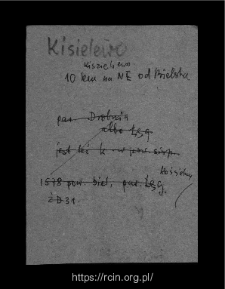 Kisielewo
Kisielewo
10 km na NE od Bielska
par. Drobnin
albo Łęg
jest też k. w pow. sierp.
1578 pow. biel., par. Łęg,
ŹD 31
https://rcin.org.pl/